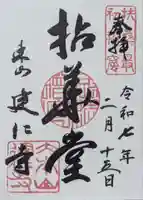 奉拝
令和七年
二月十五日
拈華堂
東山 建仁寺